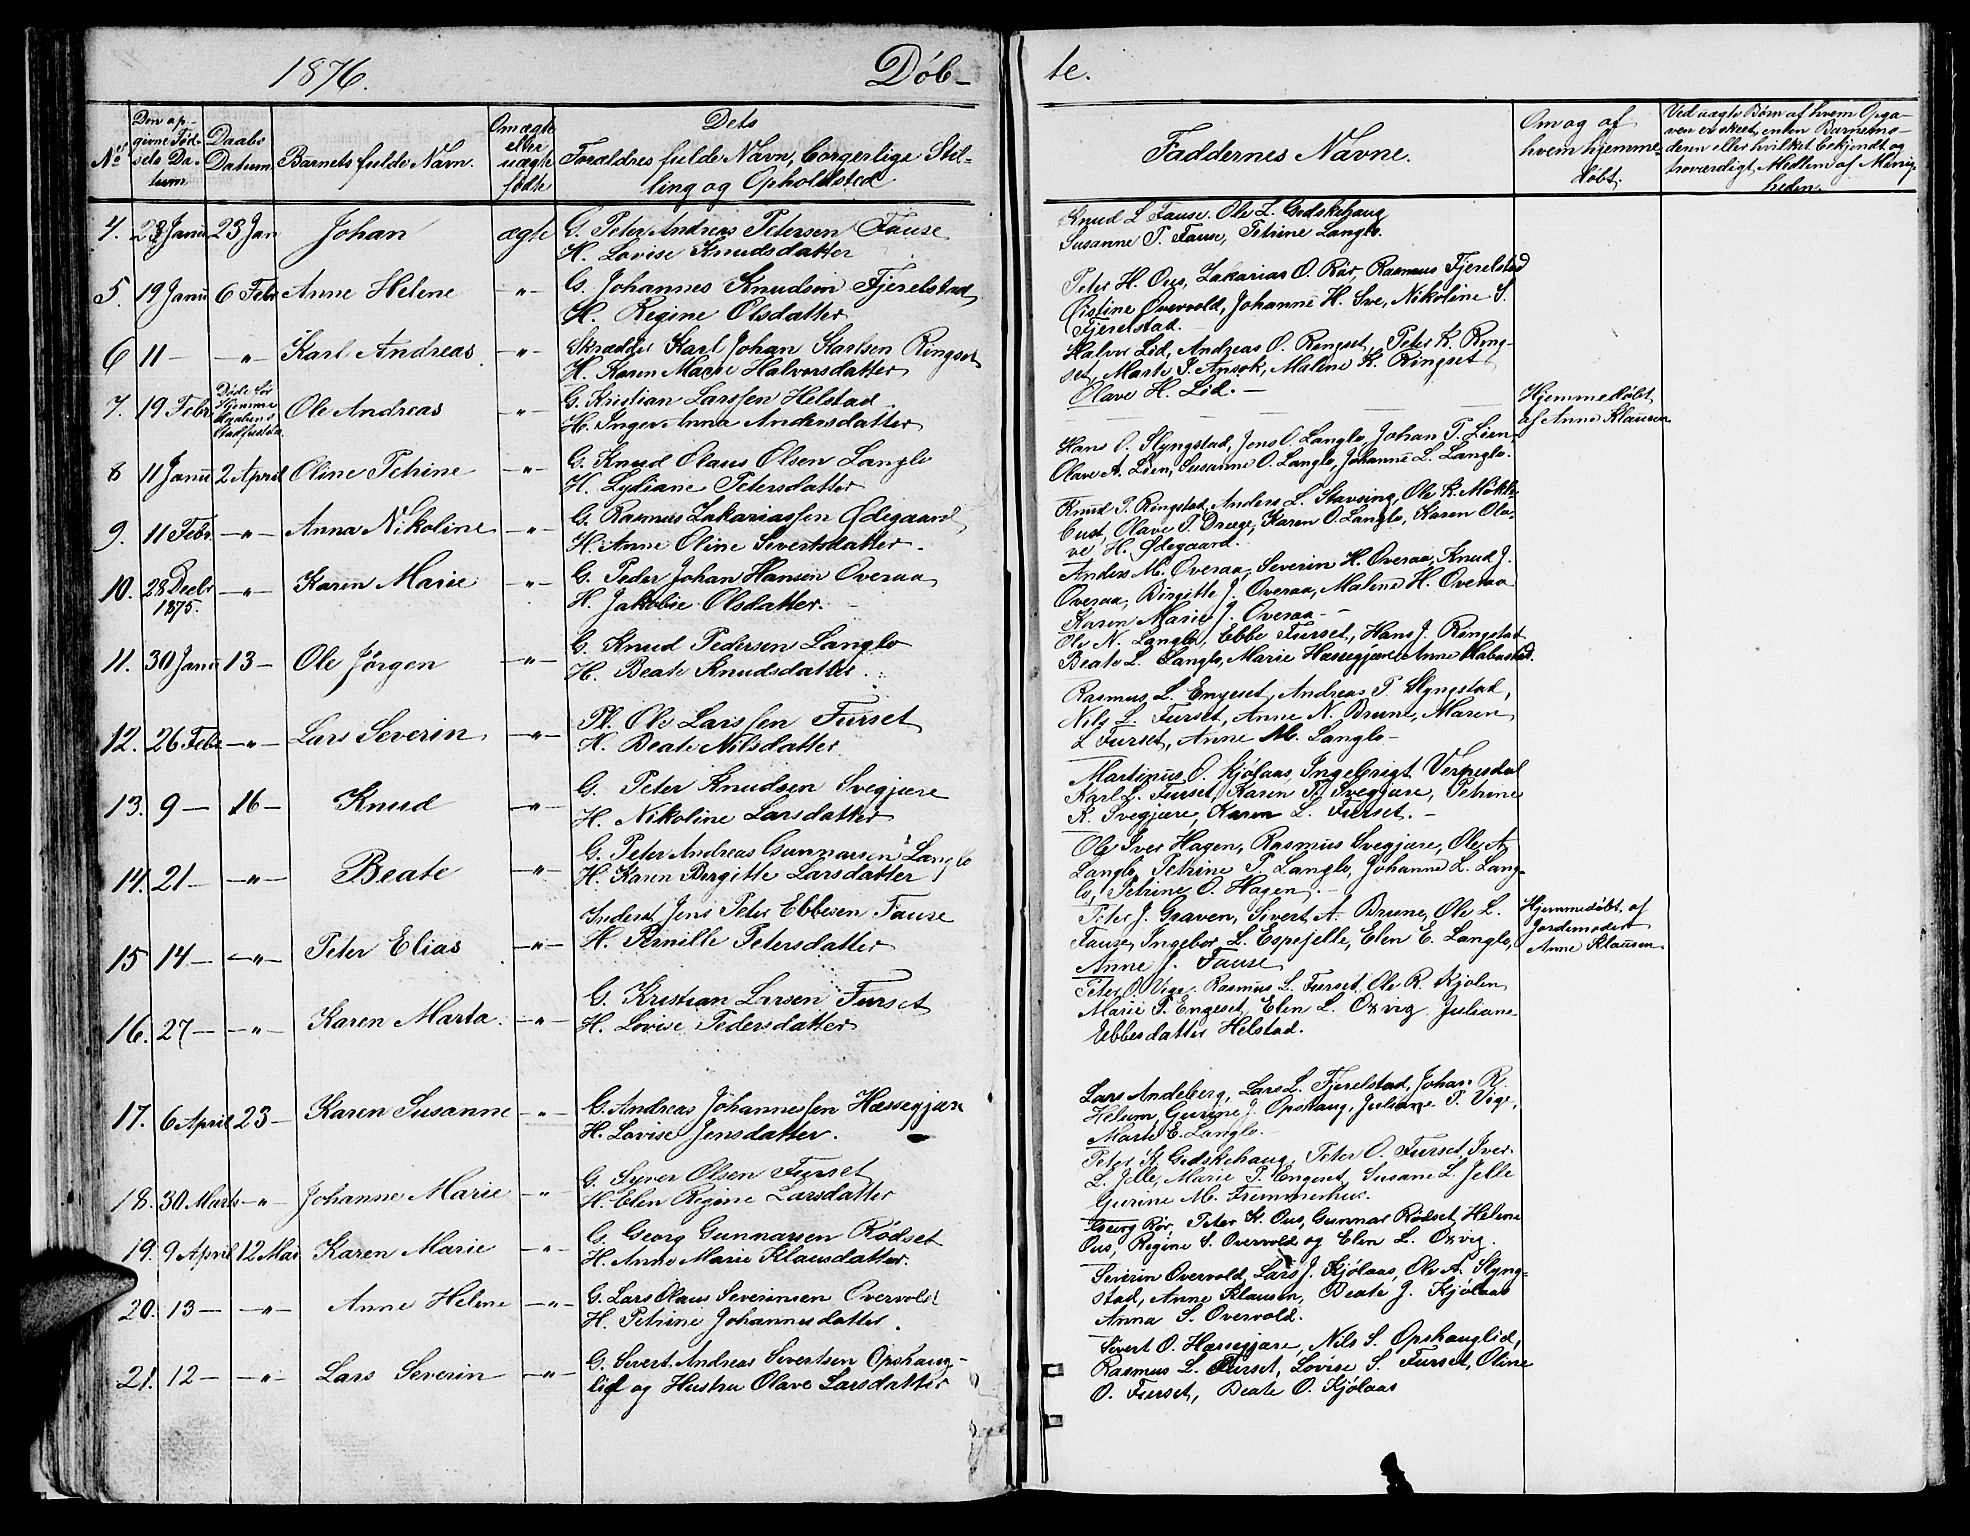 1876. Døb-
te.
No
Den opgivne Fødsels Datum
Daabs Datum
Barnets fulde Navn.
Om ægte eller uægte fødte
Dets Foraldres fulde Navn, borgerlige Stilling og Opholdsted
Faddernes Navne.
Om og af hvem hjemmedøbt.
Ved uægte Børn af hvem Opgaven er skeet, enten Barnemoderen eller hvilket bekjendt og troværdigt Medlem af Menigheden
4. 23 Janu 23 Jan Johan ægte G. Peter Andreas Petersen Fause
H. Lovise Knudsdatter
Knud L Fause. Ole L. Gedskehaug
Susanne P. Fause, Petrine Langlo.
5. 19 Janu 6 Febr Anne Helene -"- G. Johannes Knudson Fjerelstad
H. Regine Olsdatter
Peter H. Ous, Zakarias O. Rør, Rasmus Fjerelstad
Overvold, Johanne H. Sve, Nikoline S.
Fjerelstad.
6 11 - -"- Karl Andreas. -"- Skrædder Karl Johan Karlsen Ringset
H. Karen Marie Halvorsdatter
Halvor Lid, Andreas O. Ringset, Peter K. Ring-
set, Marte J. Ansok, Malene K. Ringset
Olave H. Lid. -
7. 19 Febr Døde før Hjemme daabens Stadfæstelse Ole Andreas -"- G. Kristian Larssen Helstad.
H. Inger Anna Andersdatter
Hjemmedøbt
af Anne Klausen
8 11 Janu 2 April Oline Petrine -"- G. Knud Olaus Olsen Langlo
H. Lydiane Petersdatter
Hans O. Slyngstad, Jens O. Langlo, Johan P. Lien
Olave A. Lien, Susanne O. Langlo, Johanne L. Langlo.
9. 11 Febr. -"- Anna Nikoline -"- G. Rasmus Zakariassen Ødegaard
H. Anne Oline Sivertsdatter.
Knud P. Ringstad, Anders L. Stavsing, Ole K. Møkle-
bust, Olave P. Drage, Karen O. Langlo, Karen Ola-
ve H. Ødegaard.
10. 28 Decbr 1875. -"- Karen Marie -"- G. Peder Johan Hansen Overaa
H. Jakobie Olsdatter.
Anders M. Overaa, Severin H. Overaa, Knud J.
Overaa, Birgitte J. Overaa, Malene H. Overaa
Karen Marie J. Overaa -
11. 30 Janu 13 - Ole Jørgen -"- G. Knud Pedersen Langlo
H. Beate Knudsdatter.
Ole N. Langlo, Ebbe Furset, Hans J. Ringstad
Beate L. Langlo, Marie Hassegjære, Anne
12. 26 Febr -"- Lars Severin -"- Pl. Ole Larssen Furset
H. Beate Nilsdatter
Rasmus L. Engeset, Andreas P. Slyngstad,
Nils L. Furset, Anne N. Brune, Maren
L Furset, Anne M. Langlo -
13. 9 - 16 - Knud -"- G. Peter Knudsen Svegjære
H. Nikoline Larsdatter
Martinus O. Kjølaas, Ingebrigt Verpesdal
Karl L. Furset, Karen P. Svegjære, Petrine
K. Svegjære, Karen L. Furset. -
14. 21 - -"- Beate -"- G. Peter Andreas Gunnarsen Langlo
H. Karen Bergitte Larsdatter
Ole Iver Hagen, Rasmus Svegjære, Ole A
Langlo, Petrine P. Langlo, Johanne L. Lang-
lo, Petrine O. Hagen. -
15 14 - -"- Peter Elias -"- Inderst Jens Peter Ebbesen Fause
H. Pernille Petersdatter
Peter J. Graven, Sivert A. Brune, Ole L.
Fause, Ingebor L. Espejelle, Elen E. Langlo,
Anne J. Fause
Hjemmedøbt af
Jordemoder
Anne Klausen
16. 27 - -"- Karen Marta. -"- G. Kristian Larsen Furset
H. Lovise Pedersdatter
Peter O. Vige, Rasmus L. Furset, Ole R. Kjølen
Marie P. Engeset, Elen L. Oxvig Juliane
Ebbesdatter Helstad.
17. 6 April 23 - Karen Susanne -"- G. Andreas Johannessen Hassegjære
H. Lovise Jensdatter.
Lars Andeberg, Lars L. Fjerelstad, Johan R.
Helum, Gurine J. Opshaug, Juliane P. Vige,
Marte E. Langlo. -
18. 30 Marts -"- Johanne Marie -"- G. Syver Olsen Furset
H. Elen Regine Larsdatter
Peter K. Gedskehaug, Peter O. Furset, Iver
L. Jelle, Marie P. Engeset, Susane L. Jelle
Gurine M. Fremmerhus.
19. 9 April 12 Mai Karen Marie -"- G. Georg Gunnarsen Rødset
H. Anne Marie Klausdatter.
Georg Rør, Peter K. Ous, Gunnar Rødset, Helene
Ous, Regine S. Overvold og Elen L. Oxvig.
20. 13 - -"- Anne Helene -"- G. Lars Olaus Severinsen Overvold
H. Petrine Johannesdatter.
Severin Overvold, Lars J. Kjølaas, Ole A. Slyng-
stad, Anne Klausen, Beate J. Kjølaas
Anna S. Overvold.
21. 12 - -"- Lars Severin -"- G. Sivert Andreas Sivertsen Opshaug-
lid og Hustru Olave Larsdatter
Sivert O. Hassegjære, Nils S. Opshauglid,
Rasmus L. Furset, Lovise S. Furset, Oline
O. Furset, Beate O. Kjølaas